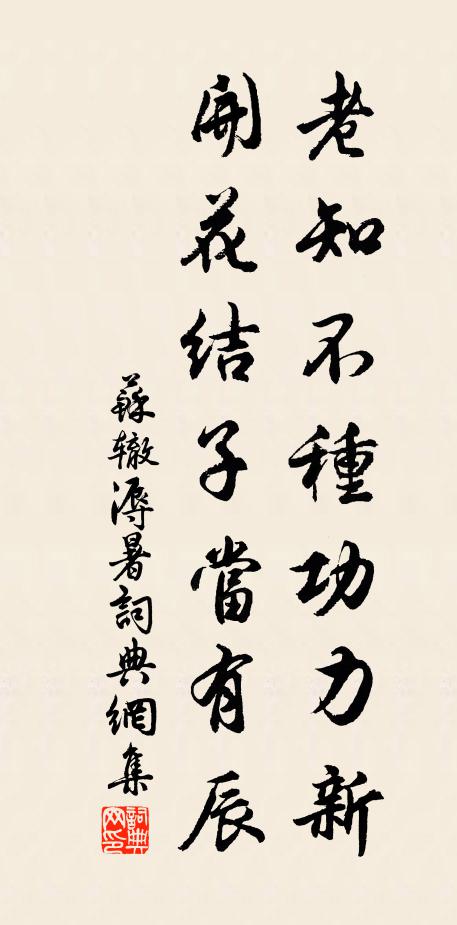 老知不種功力新
開花結子當有辰
蘇辙溽暑詞典網集
詞典网印